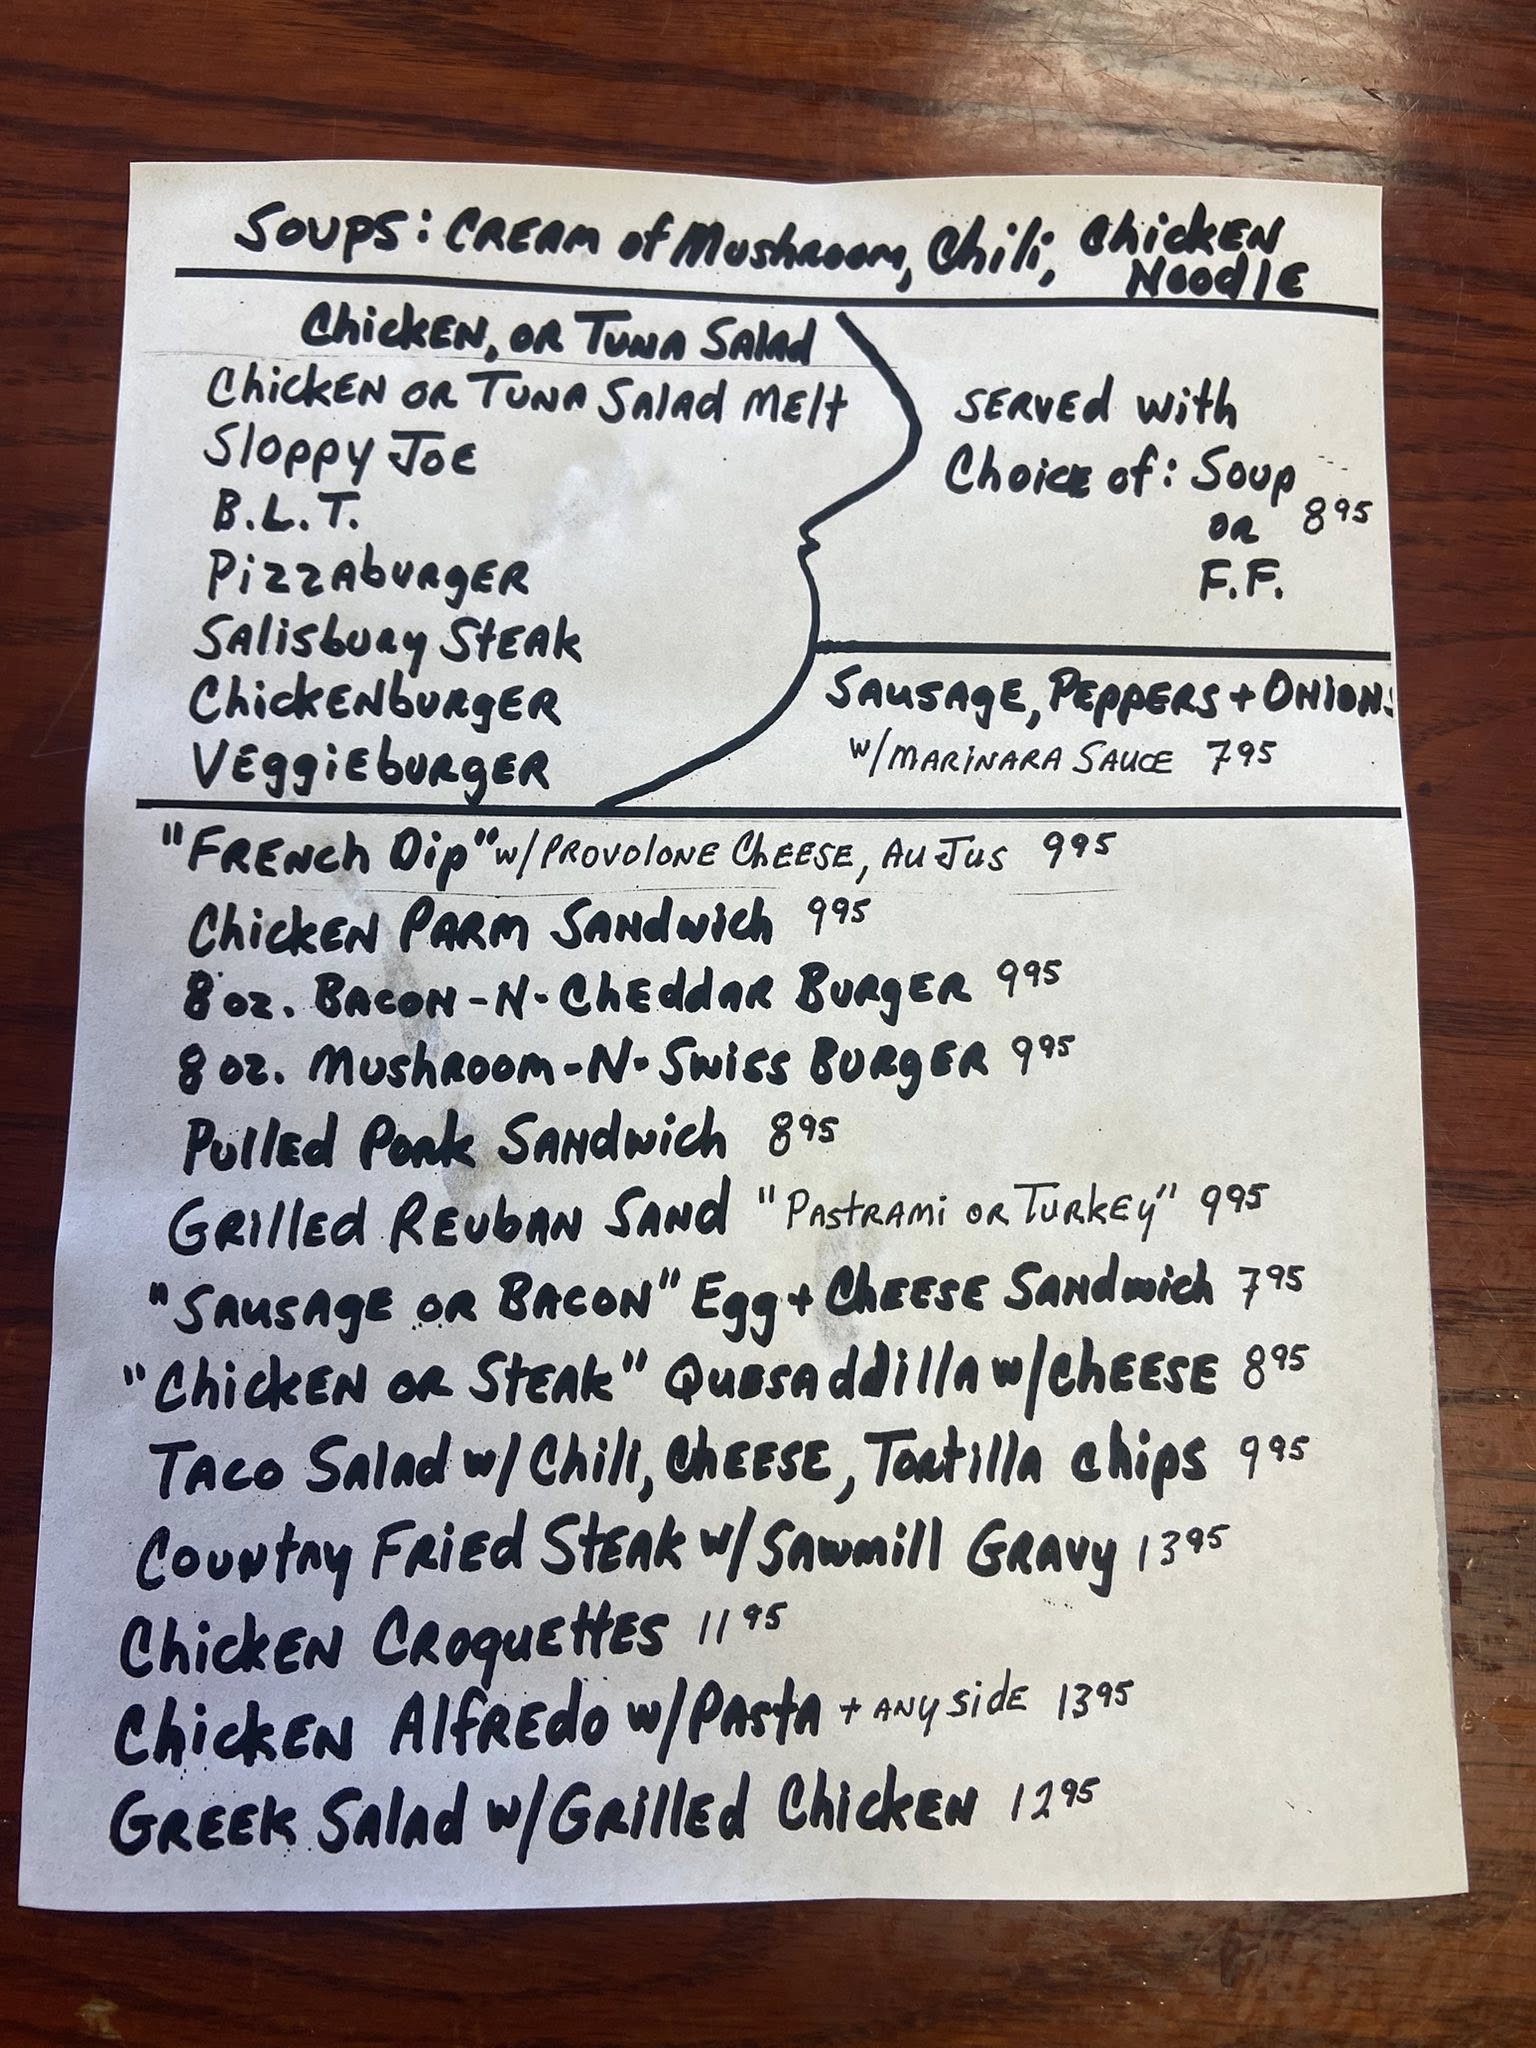 SOUPS: CREAM of MUSHROOM, Chili, ChickEN
NOOdlE
ChickEN, OR TUNA SAlAd
ChickEN OR TUNA SAlAd MElt
Sloppy JOE
B.L.T.
PizzAbURgER
SAlisbURy StEAk
ChickENbURgER
VEggiEbURgER
SERVEd with
ChoicE of: Soup
OR 8 95
F.F.
SAUSAgE, PEppERS + ONiONS
w/MARINARA SAUCE 7 95
"FRENch Dip" w/PROVOlONE ChEESE, AU JUS 9 95
ChickEN PARM SANdwich 9 95
8 oz. BACON-N-ChEddAR BURgER 9 95
8 oz. MUShROOM-N-SwiSS BURgER 9 95
PUllEd PORk SANdwich 8 95
GRillEd REUbAN SANd "PAStRAMi OR TURkEy" 9 95
"SAUSAgE OR BACON" Egg + ChEESE SANdwich 7 95
"ChickEN OR StEAk" QUESAddillA w/ChEESE 8 95
TACO SAlAd w/Chili, ChEESE, TORtillA chips 9 95
COUNtRy FRiEd StEAk w/SAwmill GRAVy 13 95
ChickEN CROqUEttES 11 95
ChickEN AlfREdo w/PAStA + ANy SidE 13 95
GREEk SAlAd w/GRillEd ChickEN 12 95